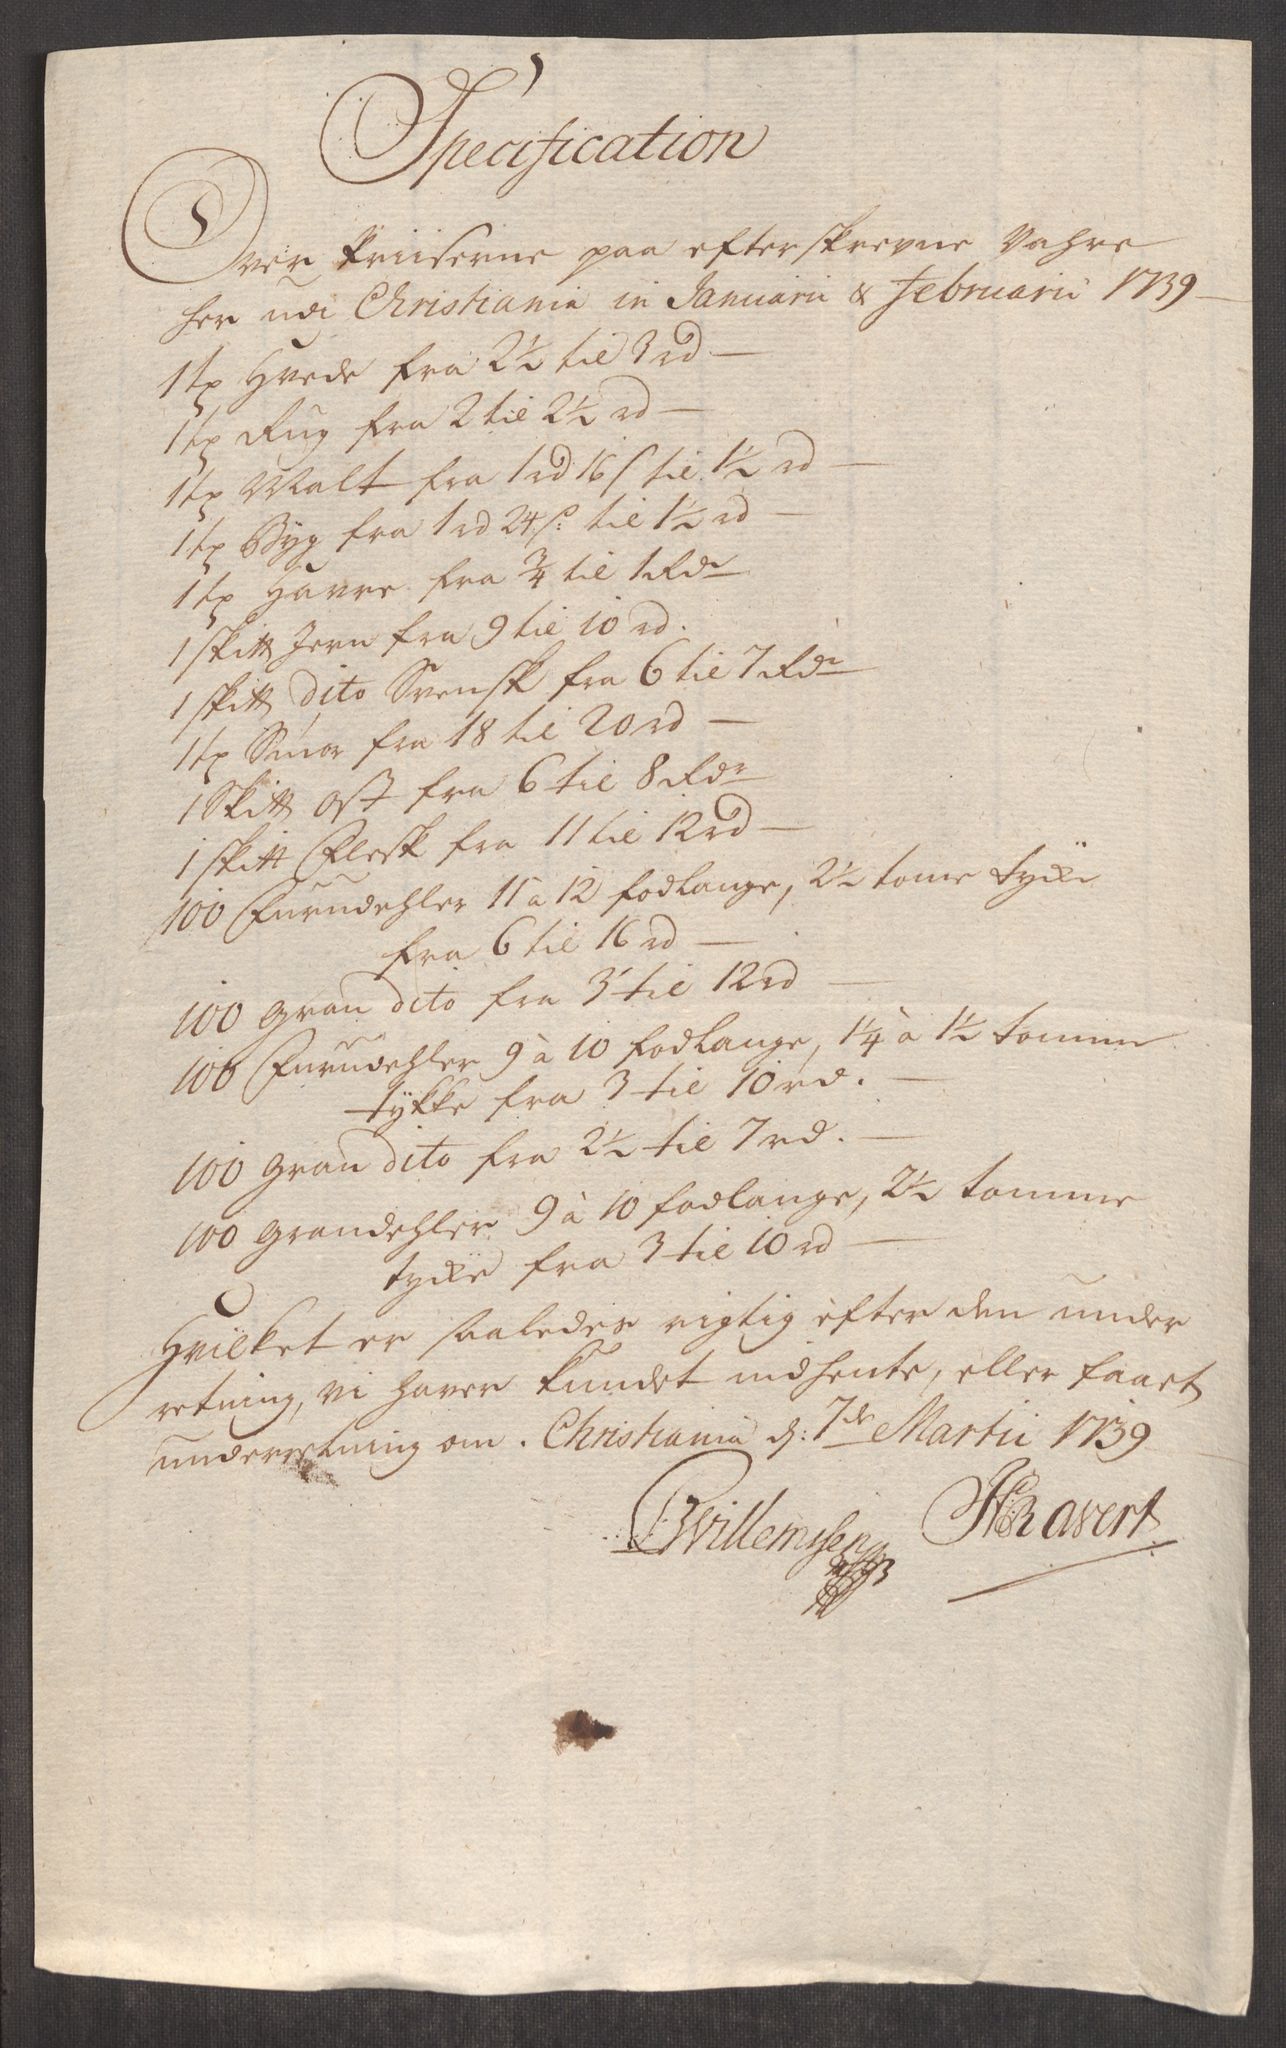 Specification
Over Priiserne paa efterskrevne Vahre
her udi Christiania in Januarii & Februarii 1739
1 tp Hvede fra 2½ til 3 rd
1 tp Rug fra 2 til 2½ rd
1 tp Malt fra 1 rd 16 s til 1½ rd
1 tp Byg fra 1 rd 24 s: til 1½ rd
1 tp Havre fra ¾ til 1 Rdr
1 skitt Jern fra 9 til 10 rd.
1 skitt dito Svensk fra 6 til 7 Rdr
1 tp Smør fra 18 til 20 rd
1 Skitt Ost fra 6 til 8 Rdr
1 skitt Flesk fra 11 til 12 rd
100 Furudehler 11 a 12 fodlange, 2½ tome tyke
fra 6 til 16 rd
100 gran dito fra 3 til 12 rd
100 Furudehler 9 à 10 fodlange, 1¼ à 1½ tomme
tykke fra 3 til 10 rd.
100 gran dito fra 2½ til 7 rd.
100 grandehler 9 à 10 fodlange, 2½ tomme
tyke fra 3 til 10 rd
Hvilket er saaledes rigtig efter den under
retning, vi haver kundet indhente, eller faaet
underretning om. Christiania d: 7de Martii 1739
Willemssen HRavert